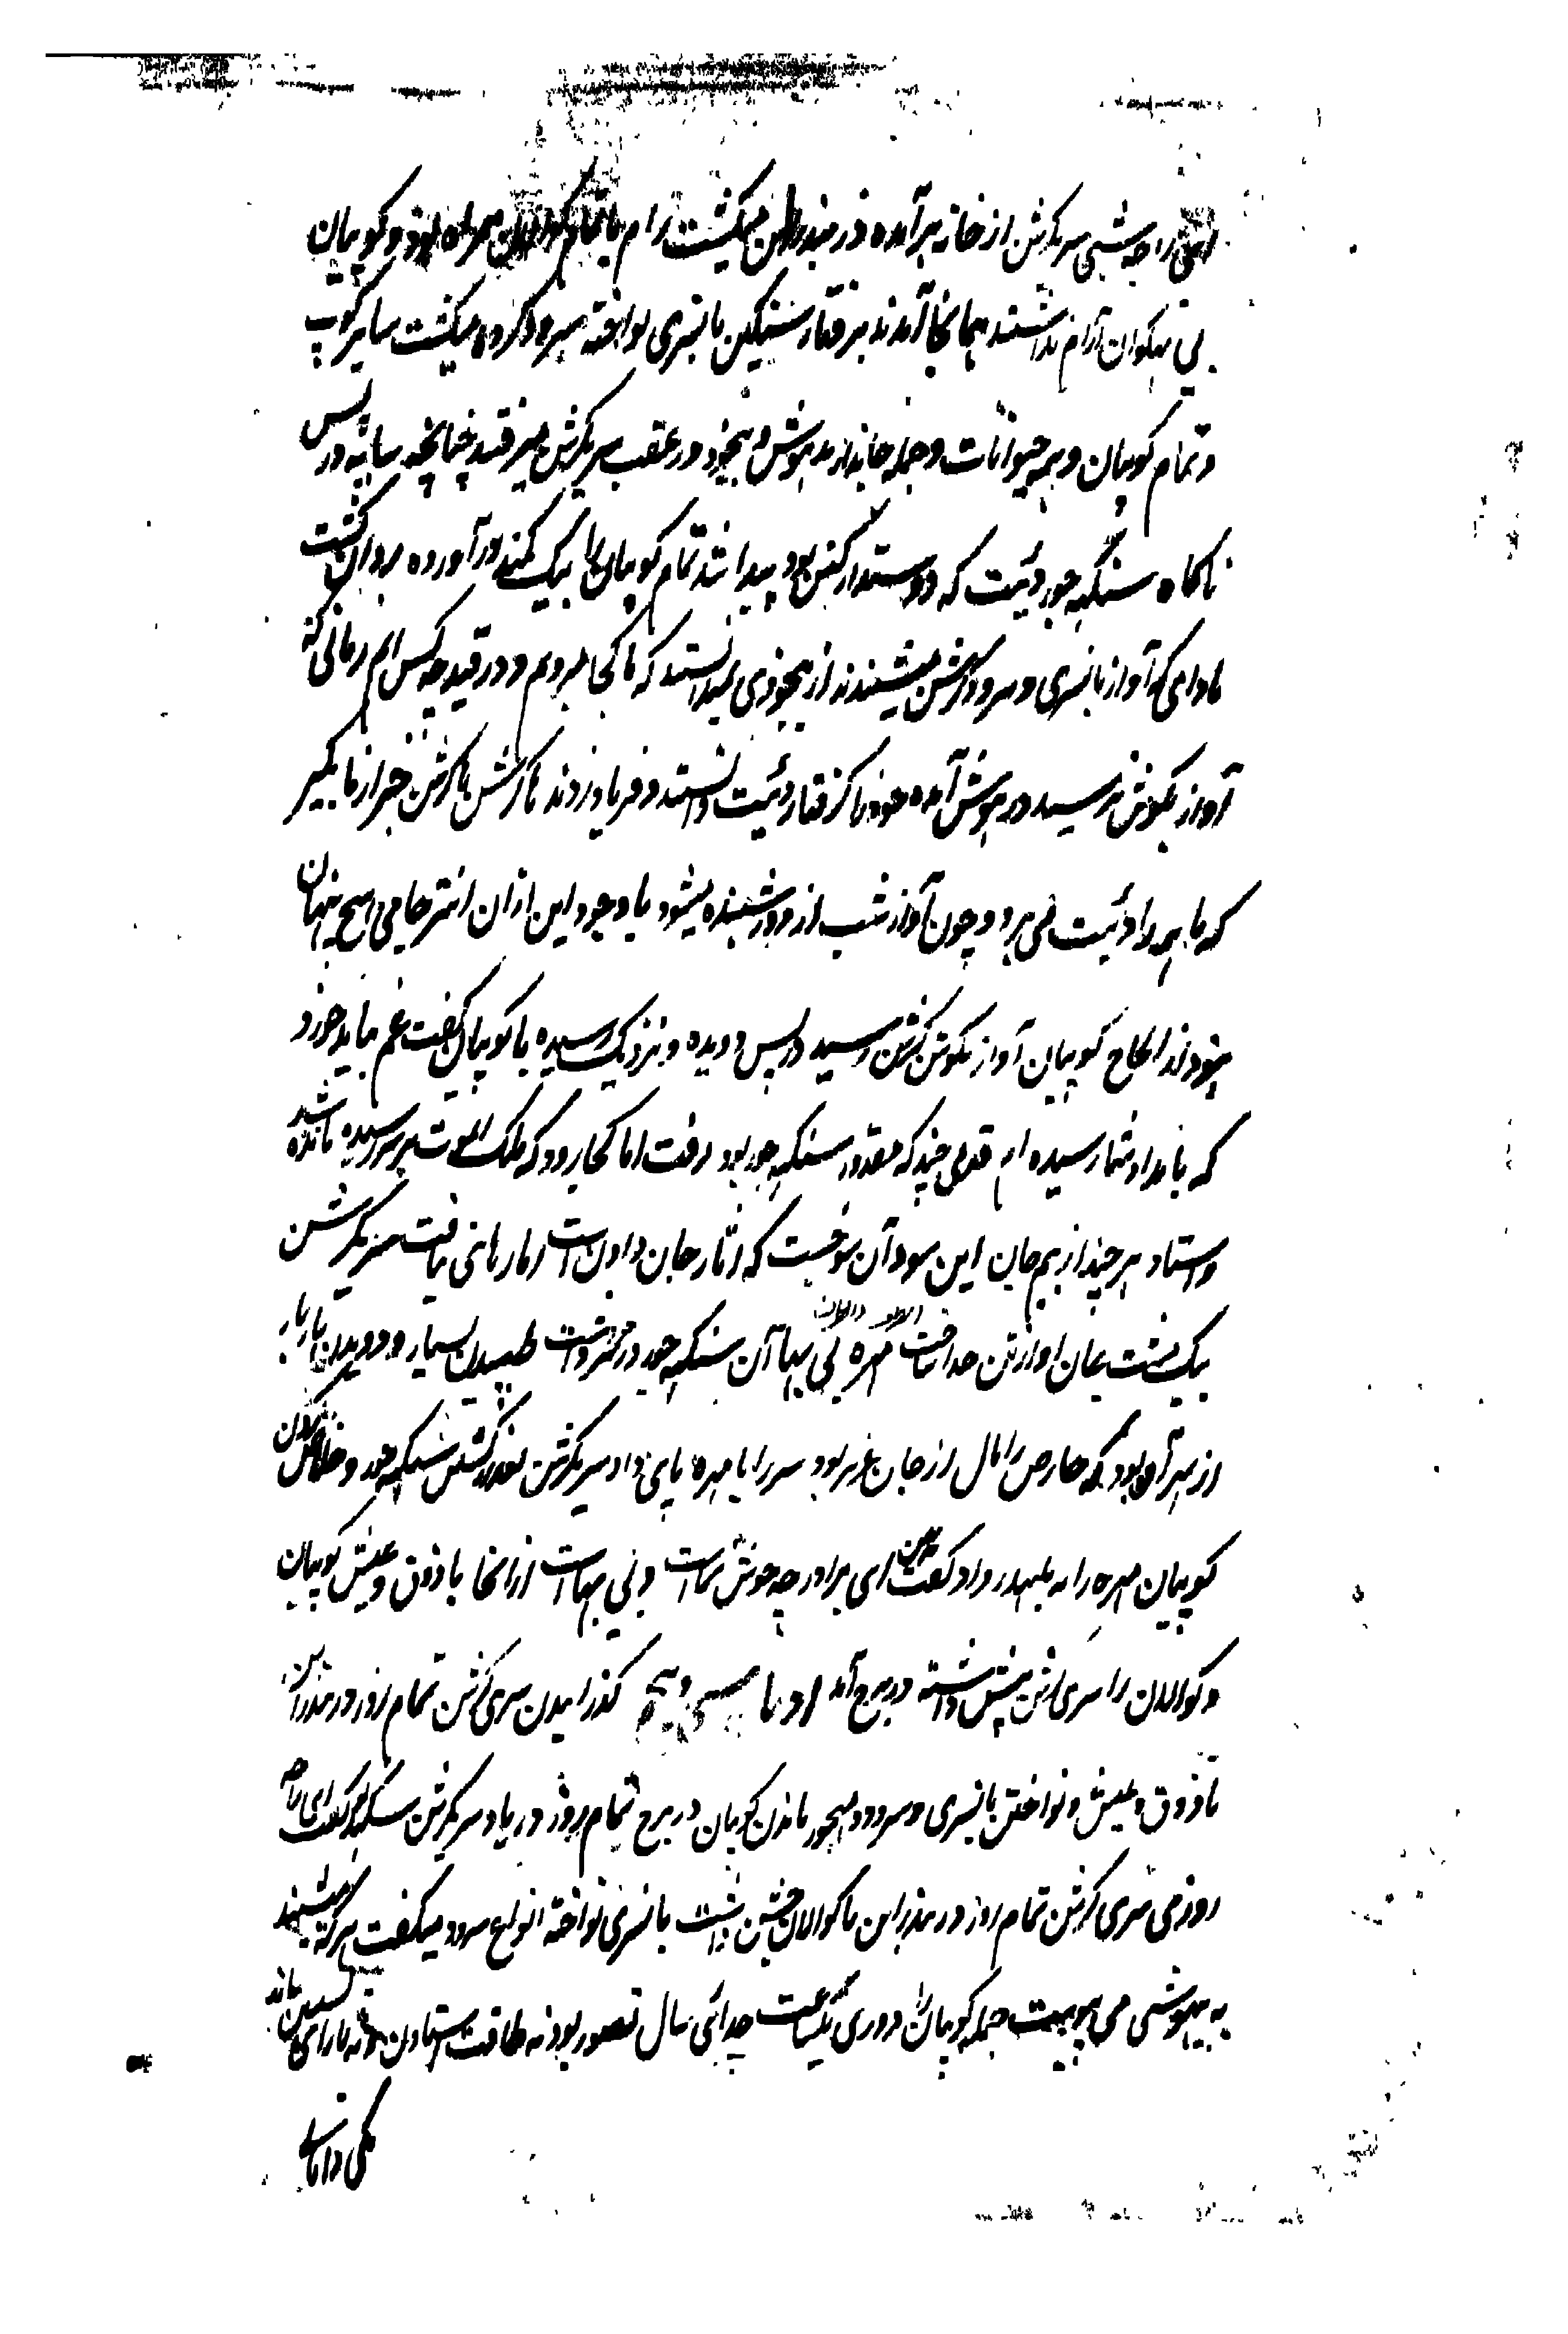 شبی سریکرشن از خانه برآمده در بندرابن میکشت رام با تمام کوالان همراه بود و کوپیان
بی بهکوان آرام نداشتند همانجا آمدند برفتار سنکین بانسری نواخته سرود کرده میکشت سایر کوپ
و تمام کوپیان و همه حیوانات و جمله جاندار مدهوش و بیخود در عقب سریکرشن میرفتند چنانچه سایه در پس
ناکاه سنکهه چور دئیت که دوستدار کنس بود پیدا شد تمام کوپیان را بیک کمند در آورده روان کشت
مادامی که آواز بانسری و سرود کرشن میشنیدند از بیخودی نمیدانستند که ما کجا میرویم و در قید چه کس ایم زمانی که
آواز بکوش نرسید در هوش آمده خود را کرفتار دئیت دانستند و فریاد زدند کرشن کرشن خبر از ما بکیر
که ما همه را دئیت می برد و چون آواز شب از دور شنیده میشود با وجود این از آن انتر جامی هیچ پنهان
نبود از الحاح کوپیان آواز بکوش کرشن رسید در پس دویده و نزدیک رسیده با کوپیان کفت غم نباید خورد
که بامداد شما رسیده ام قدمی چند که مقدور سنکهه چور بود رفت اما کجا رود که ملک الموت بر سر رسیده مانده شد
و استاد هر چند از بیم جان این سو و آن سو کشت که آثار جان دادن است اما رهائی نیافت سریکرشن
بیک مشت جان او از تن جدا ساخت مهره بی بها آن سنکهه چور در سر داشت طپیدن بسیار و دویدن بار بار
از بهر آن بود که حارص را مال از جان عزیز بود سر را با مهره پای داد سریکرشن بعد از کشتن سنکهه چور و خلاص کردن
کوپیان مهره را به بلبهدر داد کفت ای برادر چه خوش نماست و بی بهاست از آنجا با ذوق و عیش کوپیان
و کوالان را سری کرشن پیش داشته در برج آمد ادهیا سی و پنجم کذرانیدن سری کرشن تمام روز در بندرابن
با ذوق و عیش و نواختن بانسری و سرود و مهجور ماندن کوپیان در برج تمام روز در یاد سریکرشن سکدیو کفت ای راجه
روزی سری کرشن تمام روز در بندرابن با کوالان جشن داشت بانسری نواخته انواع سرود میکفت هر که میشنید
به بیهوشی می پیوست جمله کوپیان را دوری یکساعت جدائی سال تصور بود نه طاقت استادن و نه یارای نشستن ماند